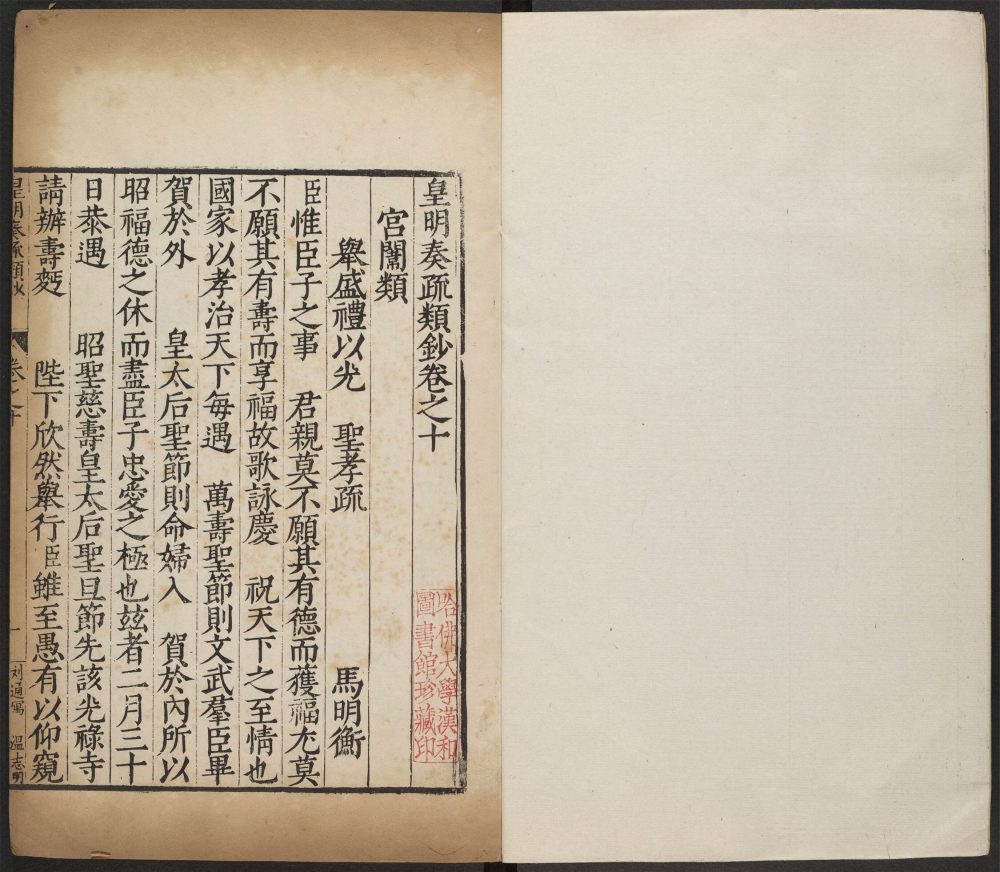 皇明奏疏類鈔卷之十
宫闈類
舉盛禮以光　聖孝疏　馬明衡
臣惟臣子之事　君親莫不願其有德而獲福尤莫
不願其有壽而享福故歌詠慶　祝天下之至情也
國家以孝治天下每遇　萬壽聖節則文武羣臣畢
賀於外　皇太后聖節則命婦入　賀於內所以
昭福德之休而盡臣子忠愛之極也玆者二月三十
日恭遇　昭聖慈壽皇太后聖旦節先該光禄寺
請辦壽麫　陛下欣然舉行臣雖至愚有以仰窺
皇明奏疏類鈔　卷之十　一　刘通寫　温志明
哈佛大學漢和
圖書館珍藏印